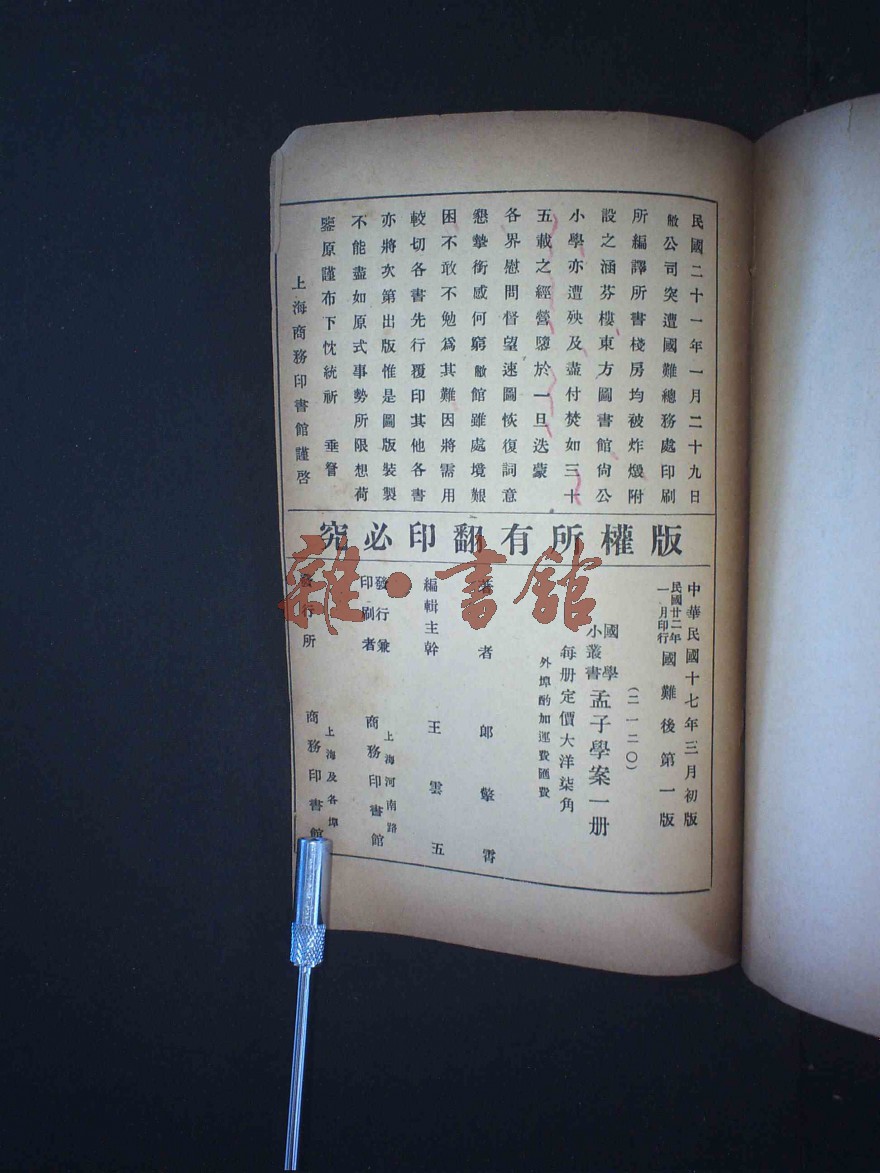 民國二十一年一月二十九日
敝公司突遭國難總務處印刷
所編譯所書棧房均被炸燬附
設之涵芬樓東方圖書館尙公
小學亦遭殃及盡付焚如三十
五載之經營隳於一旦迭蒙
各界慰問督望速圖恢復詞意
懇摯銜感何窮敝館雖處境艱
困不敢不勉爲其難因將需用
較切各書先行覆印其他各書
亦將次第出版惟是圖版裝製
不能盡如原式事勢所限想荷
鑒原謹布下忱統祈 垂詧
上海商務印書館謹啓
版權所有翻印必究
中華民國十七年三月初版
民國廿二年一月印行 國難後第一版
(二一二〇)
國學小叢書 孟子學案一册
每册定價大洋柒角
外埠酌加運費匯費
著者 郎擎霄
編輯主幹 王雲五
發行兼印刷者 上海河南路 商務印書館
發行所 上海及各埠 商務印書館
雜·書館